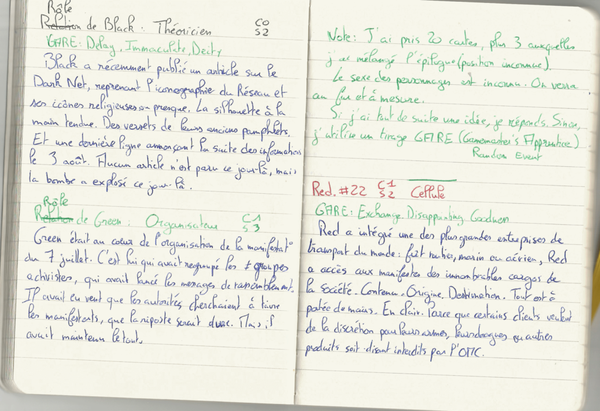 Rôle
Relation de Black : Théoricien C0
S2
GARE: Delay, Immaculate, Deity
Black a récemment publié un article sur le
Dark Net, reprenant l'iconographie du Réseau et
ses icônes religieuses ou presque. La silhouette à la
main tendue. Des versets de leurs anciens pamphlets.
Et une dernière ligne annonçant la suite des informations
le 3 août. Aucun article n'est paru ce jour-là, mais
la bombe a explosé ce jour-là.
Rôle
Relation de Green : Organisateur C1
S3
Green était au cœur de l'organisation de la manifestat°
du 7 juillet. C'est lui qui avait regroupé les ≠ groupes
activistes, qui avait lancé les messages de rassemblement.
Il avait eu vent que les autorités cherchaient à
les manifestants, que la riposte serait dure. Mais, il
avait maintenu le tout.
Note: J'ai pris 20 cartes, plus 3 auxquelles
j'ai mélangé l'épilogue (position inconnue).
Le sexe des personnages est inconnu. On verra
au fur et à mesure.
Si j'ai tout de suite une idée, je réponds. Sinon,
j'utilise un tirage GARE (Gamemaster's Apprentice)
Random Event
Red. #22 C1 Cellule
S2
GARE: Exchange Disappointing Goodness
Red a intégré une des plus grandes entreprises de
transport du monde : fret routier, marin ou aérien, Red
a accès aux manifestes des innombrables cargos de
la société. Contenu, Origine, Destination. Tout est à
portée de mains. En clair. Parce que certains clients veulent
de la discrétion pour leurs armes, leurs drogues ou autres
produits soit-disant interdits par l'OMC.